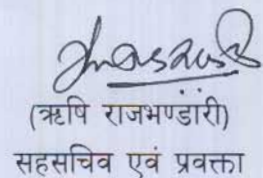 (ऋषि राजभण्डारी)
सहसचिव एवं प्रवक्ता